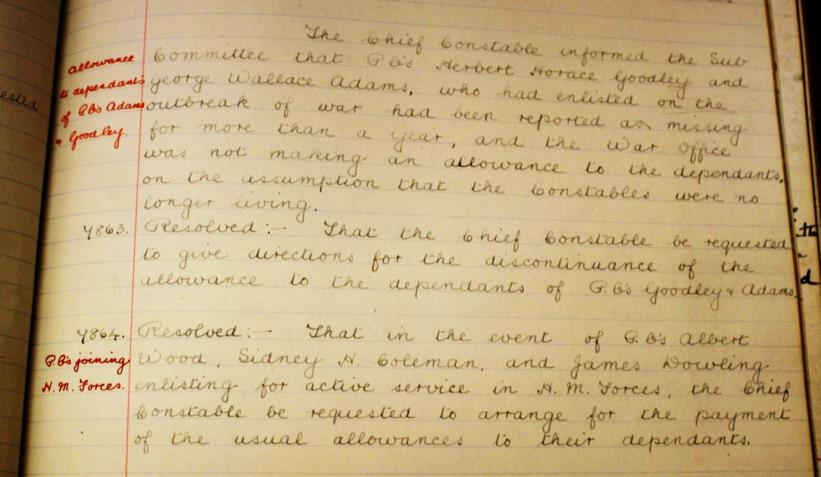 The Chief Constable informed the Sub
Committee that P.C's Herbert Horace Goodley and
George Wallace Adams, who had enlisted on the
outbreak of war had been reported as missing
for more than a year, and the War Office
was not making an allowance to the dependants,
on the assumption that the Constables were no
longer living.
allowance
to dependants
of P.C's Adams
& Goodley.
ested
7863. Resolved:- That the Chief Constable be requested
to give directions for the discontinuance of the
allowance to the dependants of P.C's Goodley & Adams.
7864. Resolved:- That in the event of P.C's Albert
Wood, Sidney H. Coleman, and James Dowling
enlisting for active service in H.M. Forces, the Chief
Constable be requested to arrange for the payment
of the usual allowances to their dependants.
P.C's joining
H.M. Forces.